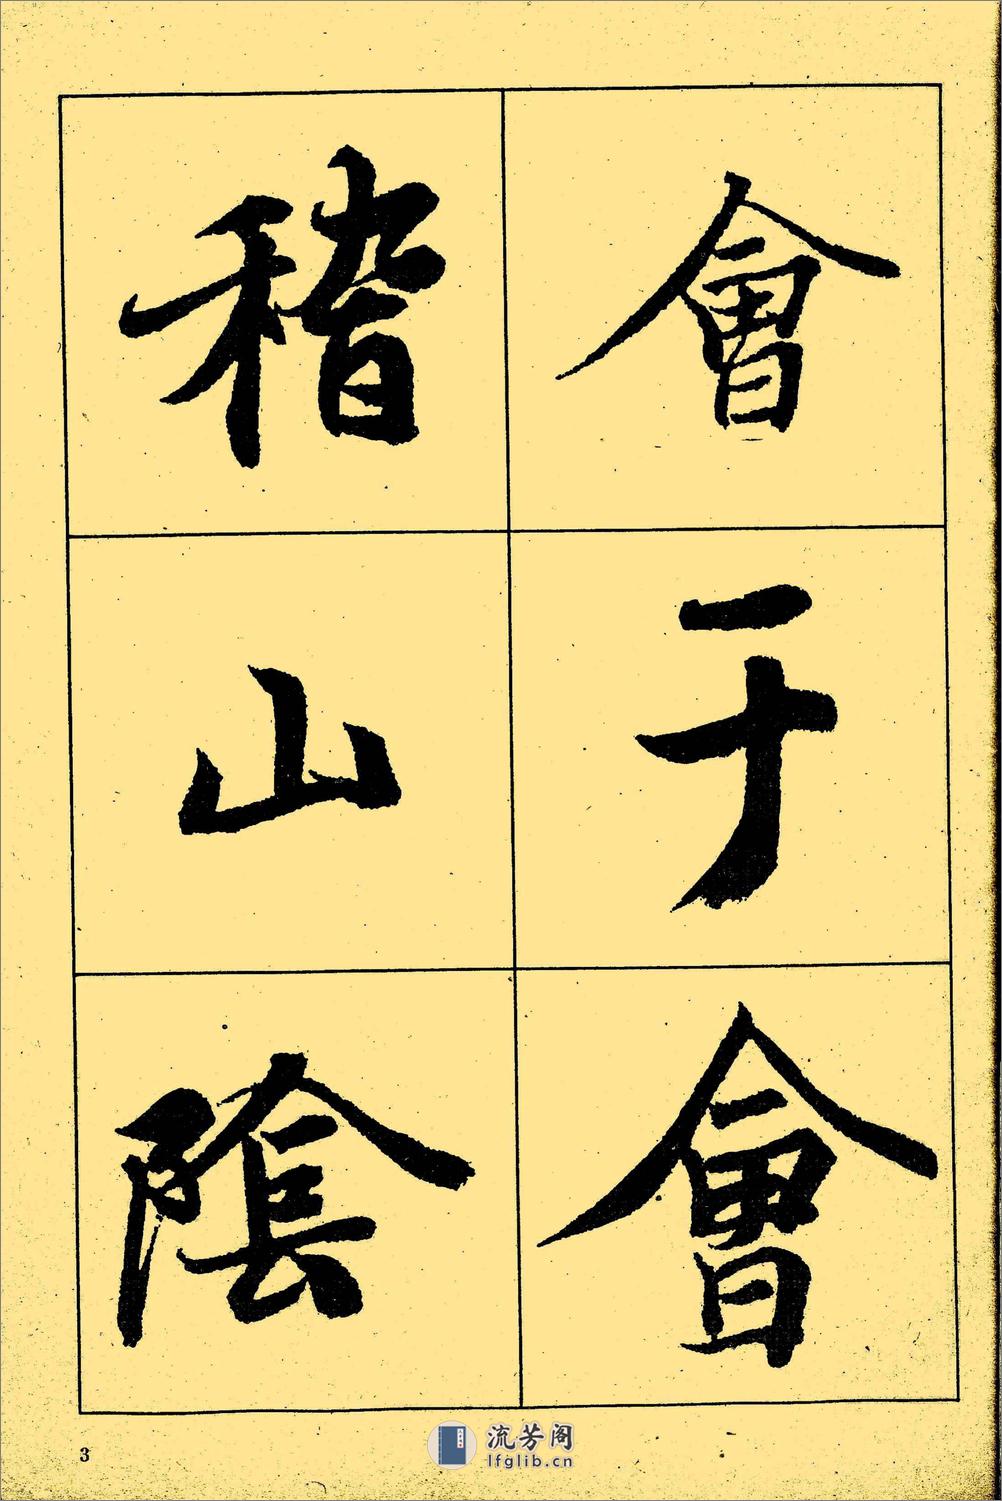 會于會
稽山陰
3
流芳阁
lfglib.cn